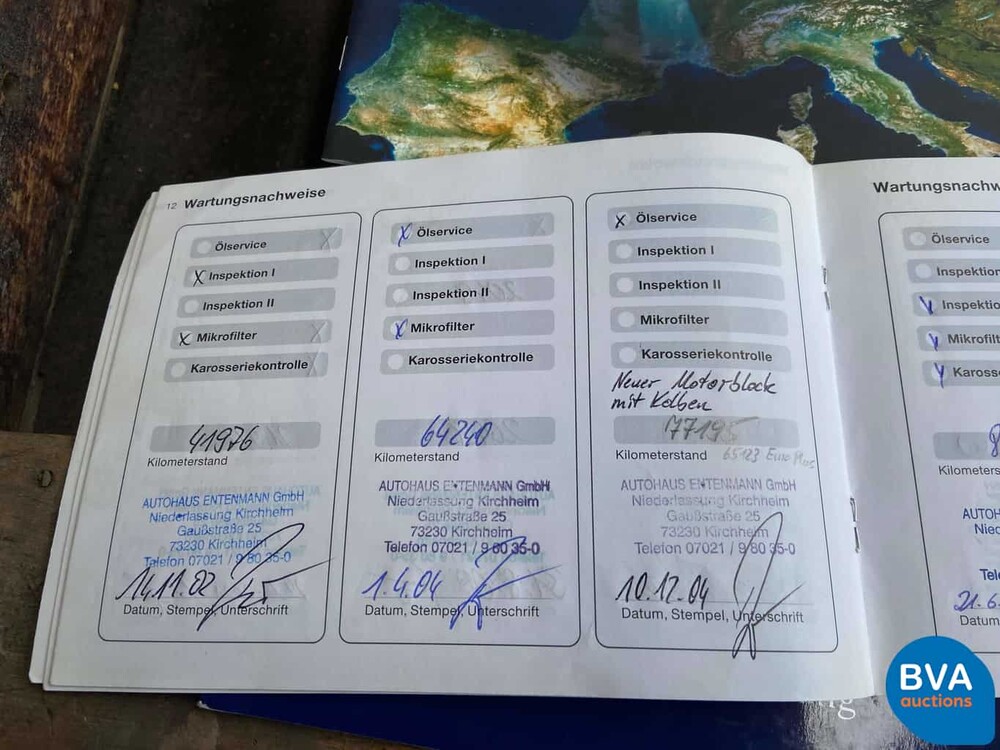 12 Wartungsnachweise
Ölservice
X Inspektion I
Inspektion II
X Mikrofilter
Karosseriekontrolle
41976
Kilometerstand
AUTOHAUS ENTENMANN GmbH
Niederlassung Kirchheim
Gaußstraße 25
73230 Kirchheim
Telefon 07021 / 9 80 35-0
14.11.02
Datum, Stempel, Unterschrift
X Ölservice
Inspektion I
Inspektion II
X Mikrofilter
Karosseriekontrolle
64240
Kilometerstand
AUTOHAUS ENTENMANN GmbH
Niederlassung Kirchheim
Gaußstraße 25
73230 Kirchheim
Telefon 07021 / 9 80 35-0
1.4.04
Datum, Stempel, Unterschrift
X Ölservice
Inspektion I
Inspektion II
Mikrofilter
Karosseriekontrolle
Neuer Motorblock
mit Kolben
77195
Kilometerstand
AUTOHAUS ENTENMANN GmbH
Niederlassung Kirchheim
Gaußstraße 25
73230 Kirchheim
Telefon 07021 / 9 80 35-0
10.12.04
Datum, Stempel, Unterschrift
Wartungsnachw
Ölservice
Inspektion
Inspektio
Mikrofilt
Kaross
Kilometers
AUTOH
Nied
Tele
21.6
Datum
BVA
auctions